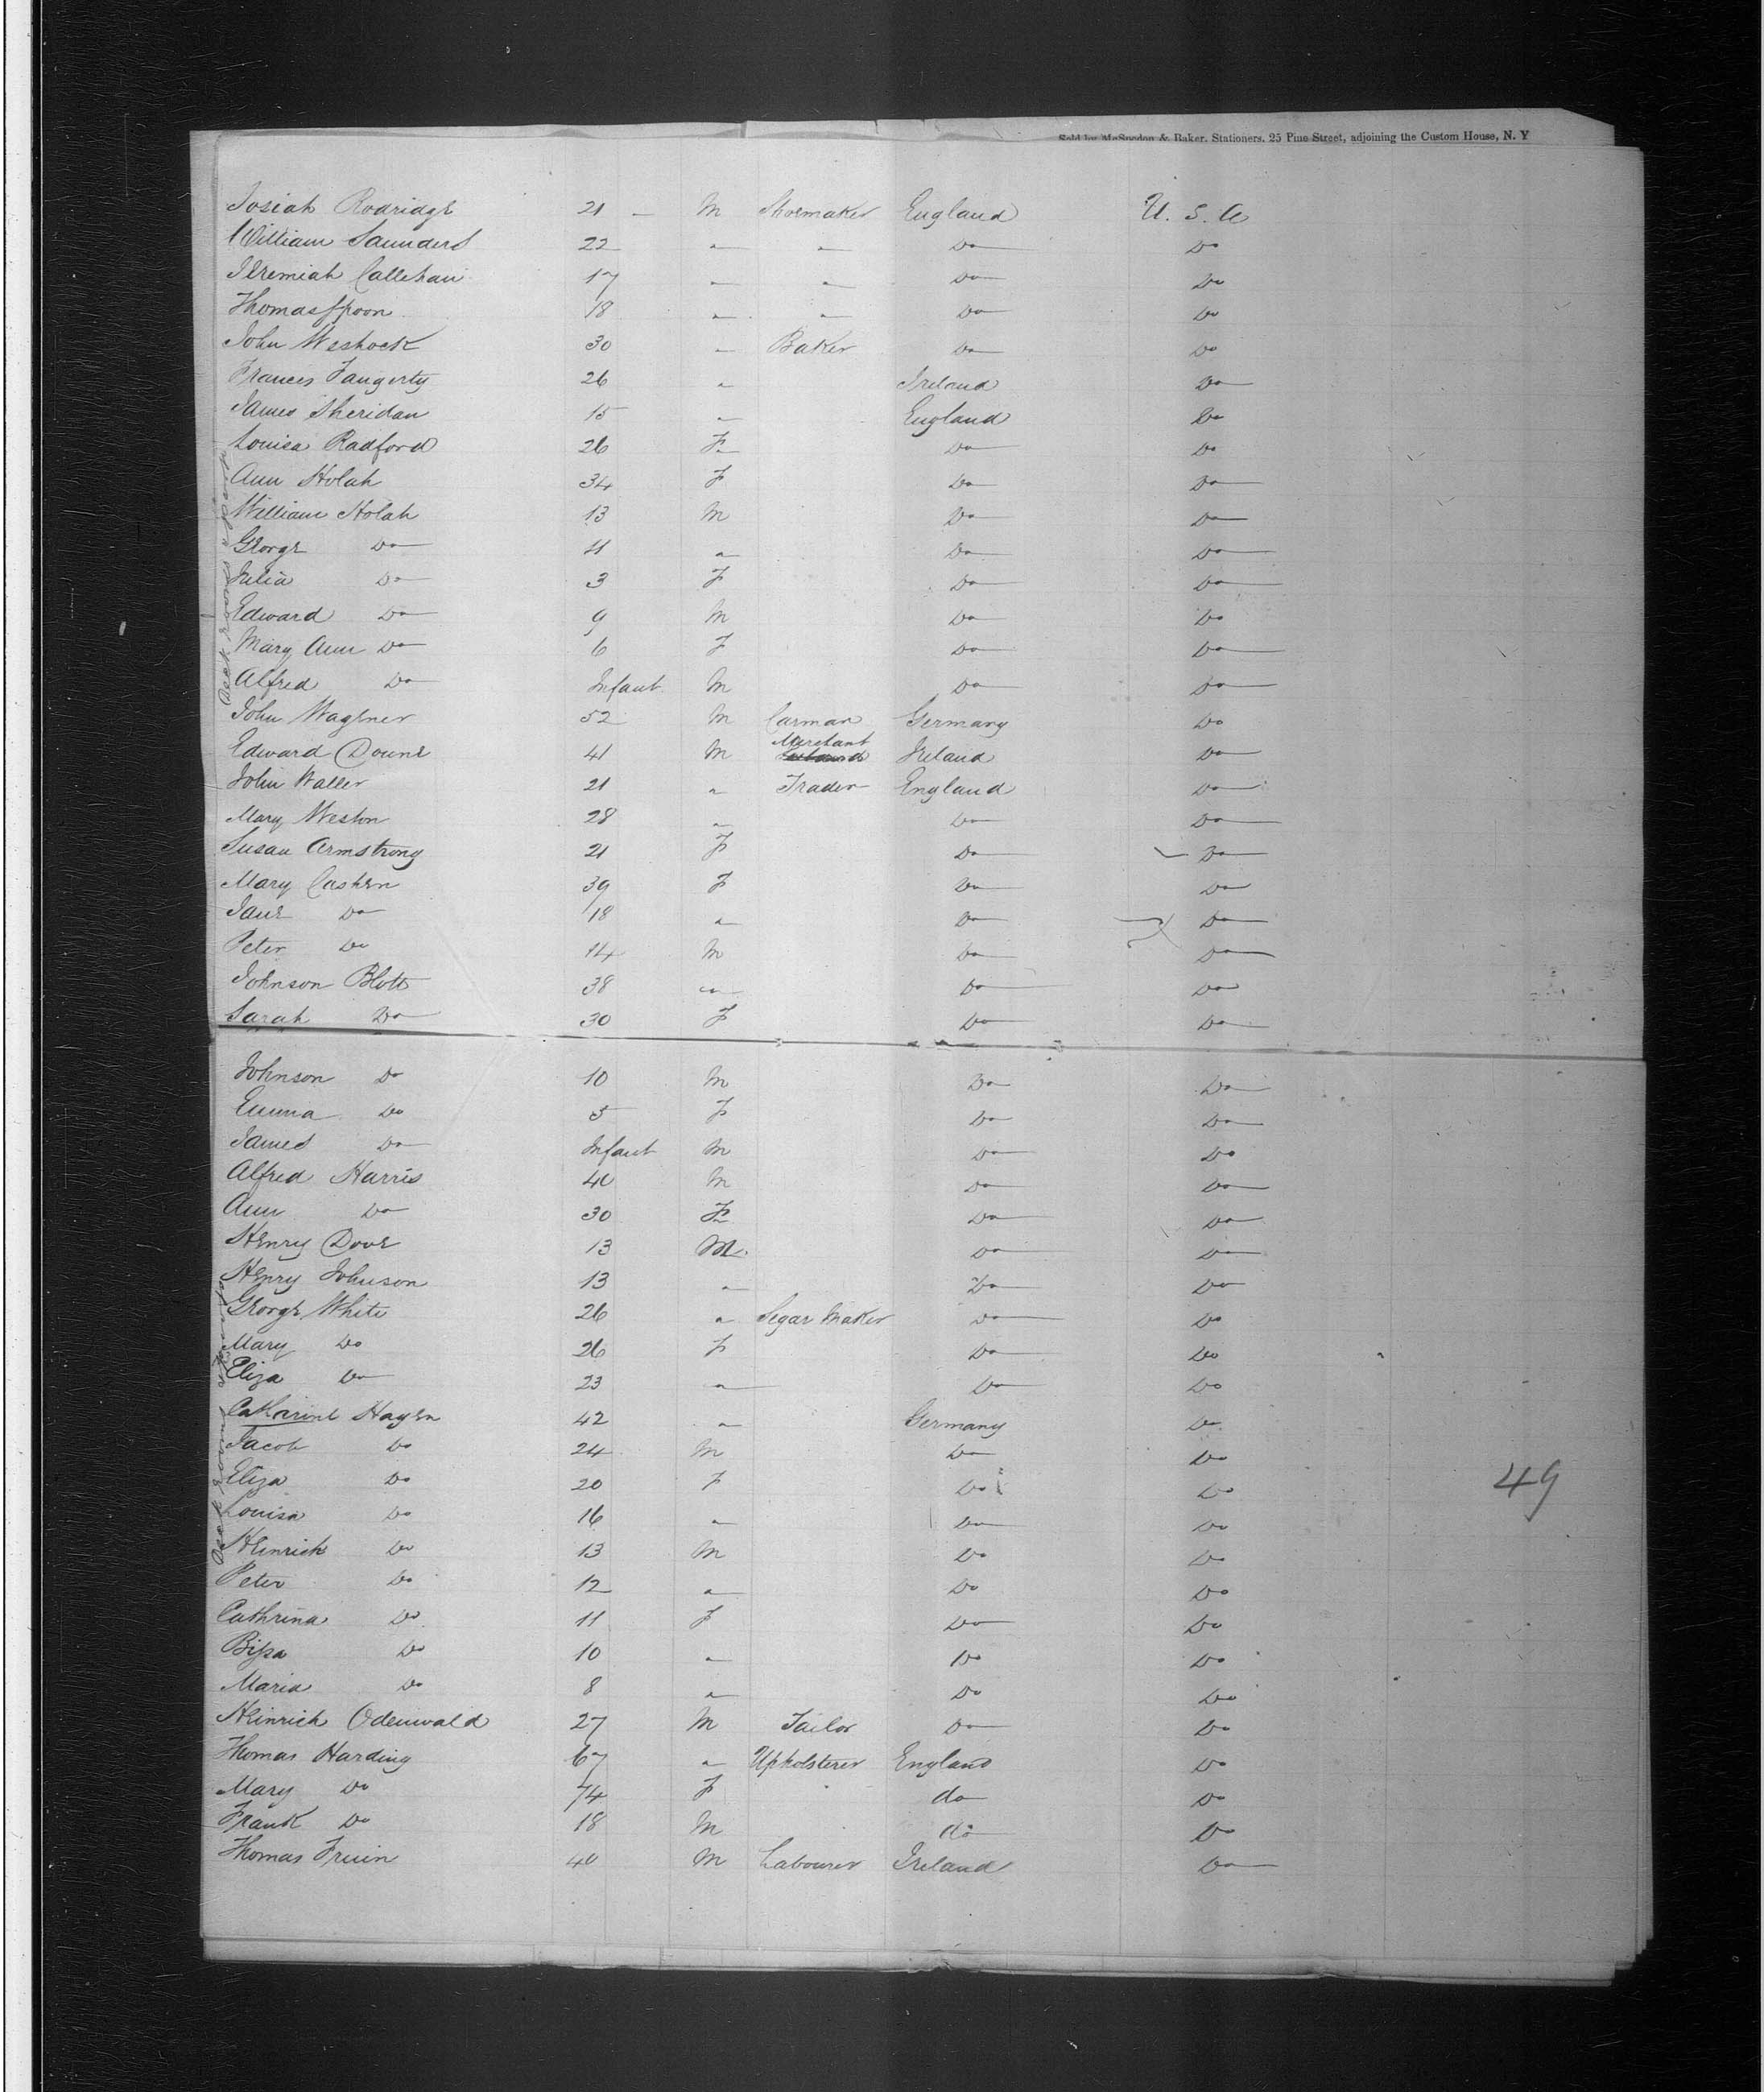 Sold by McSpedon & Baker, Stationers, 25 Pine Street, adjoining the Custom House, N. Y
Josiah Rodridge 21 — M Shoemaker England U. S. A
William Saunders 22 " " Do Do
Jeremiah Callehan 17 " " Do Do
Thomas Spoon 18 " " Do Do
John Weshock 30 " Baker Do Do
Frances Faugerty 26 " Ireland Do
James Sheridan 15 " England Do
Louisa Radford 26 F Do Do
Ann Holah 34 F Do Do
William Holah 13 M Do Do
George Do 11 " Do Do
Julia Do 3 F Do Do
Edward Do 9 M Do Do
Mary Ann Do 6 F Do Do
Alfred Do Infant M Do Do
John Wagener 52 M Carman Germany Do
Edward Doune 41 M Merchant Ireland Do
John Waller 21 " Trader England Do
Mary Weston 28 " Do Do
Susan Armstrong 21 F Do Do
Mary Cashen 39 F Do Do
Jane Do 18 " Do Do
Peter Do 14 M Do Do
Johnson Blott 38 " Do Do
Sarah Do 30 F Do Do
Johnson Do 10 M Do Do
Emma Do 5 F Do Do
James Do Infant M Do Do
Alfred Harris 40 M Do Do
Ann Do 30 F Do Do
Henry Dove 13 M. Do Do
Henry Johnson 13 " Do Do
George White 26 " Segar Maker Do Do
Mary Do 26 F Do Do
Eliza Do 23 " Do Do
Catharine Hayen 42 " Germany Do
Jacob Do 24 M Do Do
Eliza Do 20 F Do Do
Louisa Do 16 " Do Do
Heinrich Do 13 M Do Do
Peter Do 12 " Do Do
Cathrina Do 11 F Do Do
Do 10 " Do Do
Maria Do 8 " Do Do
Heinrich Odenwald 27 M Tailor Do Do
Thomas Harding 67 " Upholsterer England Do
Mary Do 74 F do Do
Frank Do 18 M do Do
Thomas Fruin 40 M Labourer Ireland Do
49